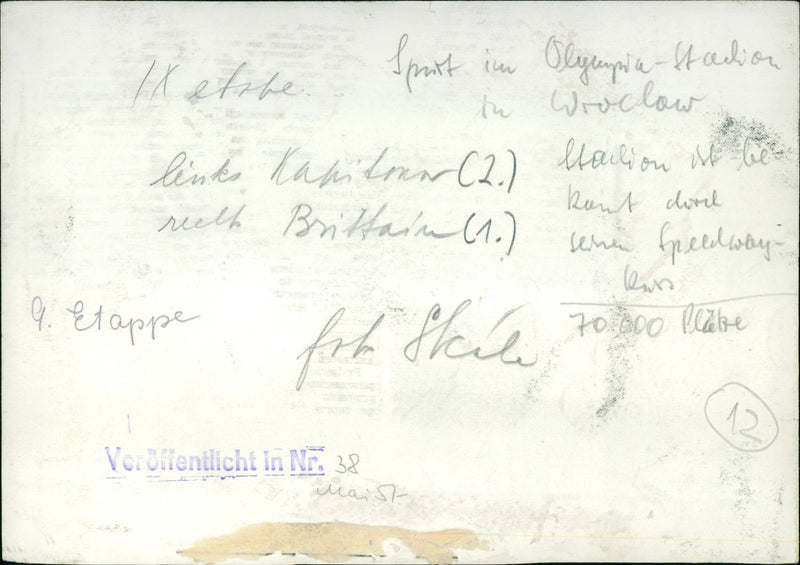 IX etape.
Sport im Olympia-Stadion
in Wroclaw
links Kapitonow (2.)
rechts Brittain (1.)
Stadion ist be-
kannt durch
seinen Speedway-
kurs
70 000 Plätze
9. Etappe
fot.
Veröffentlicht in Nr. 38
12